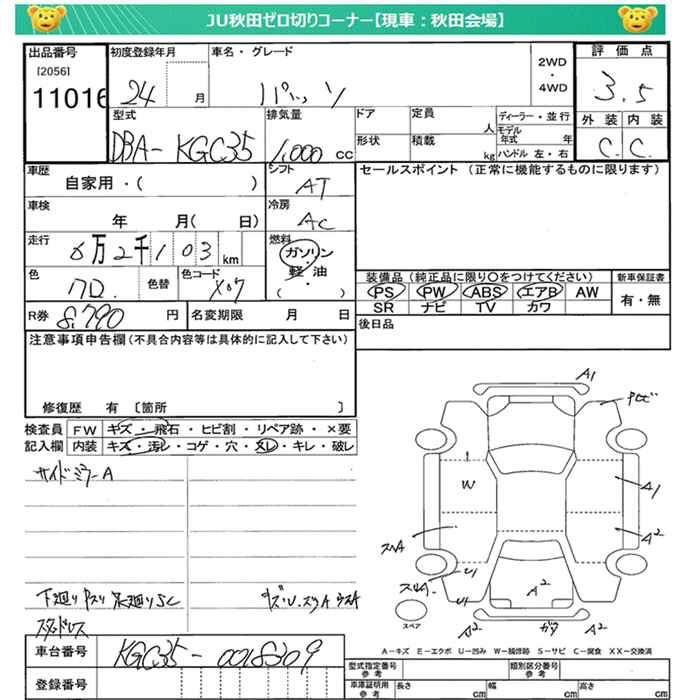 JU秋田ゼロ切りコーナー【現車：秋田会場】
出品番号
[2056]
11016
初度登録年月
24 月
車名・グレード
パッソ
2WD
・
4WD
評価点
3.5
外装 内装
C. C.
型式
DBA-KGC35
排気量
1,000 cc
ドア
形状
定員
人
積載
kg
ディーラー・並行
モデル年式 年
ハンドル 左・右
車歴
自家用・( )
シフト
AT
セールスポイント (正常に機能するものに限ります)
車検
年 月( 日)
冷房
AC
走行
6万2千103km
燃料
ガソリン
軽油
( )
色
クロ.
色替
色コード
X07
装備品(純正品に限り○をつけてください)
PS PW ABS エアB AW
SR ナビ TV カワ
新車保証書
有・無
R券
8,790 円
名変期限 月 日
後日品
注意事項申告欄(不具合内容等は具体的に記入して下さい)
修復歴 有 〔箇所 〕
検査員
記入欄
FW キズ・飛石・ヒビ割・リペア跡・×要
内装 キズ・汚レ・コゲ・穴・スレ・キレ・破レ
サイドミラーA
下廻りサビ 足廻りSC
スタッドレス
A1
W
A1
A2
U1
U1
A2
A2
A2
スペア
A－キズ E－エクボ U－凹み W－補修跡 S－サビ C－腐食 XX－交換済
車台番号
KGC35-0018309
登録番号
型式指定番号
参考
類別区分番号
参考
車庫証明用
参考
長さ cm
幅 cm
高さ cm